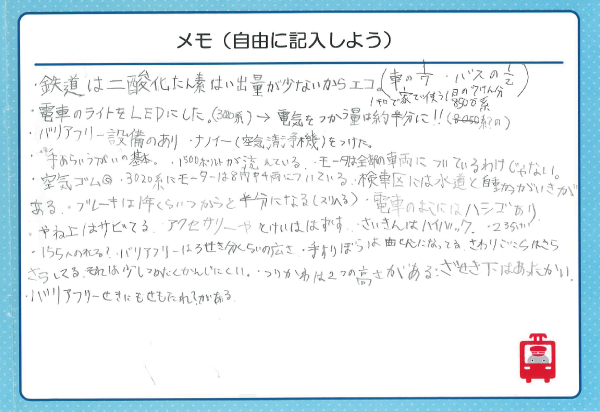 メモ（自由に記入しよう）
・鉄道は二酸化たん素はい出量が少ないからエコ。（車の1/7 ・バスの1/2）
・電車のライトをLEDにした。(3000系) → 電気をつかう量は約半分に!!
・バリアフリー設備のあり ・ナノイー(空気清浄機)をつけた。
・手あらいうがいの基本。・1500ボルトが流れている。・モーターは全部の車両についているわけじゃない。
・空気ゴム ・3020系にモーターは8両中4両についている・検車区には水道と自動
ある ・ブレーキは1年くらいつかうと半分になる(スリへる) ・電車のよこにはハシゴあり
・やね上はサビてる・アクセサリーやとけいははずす ・さいきんはハイバック。
・155人のれる？・バリアフリーは3せき分くらいの広さ ・手すりぼうは曲くんになってる。さわりごこちはさら
さらしてる。それは少しつかみにくかんじにくい。・つりかわは2つの高さがある：ざせき下はあたたかい。
・バリアフリーせきにもせもたれがある